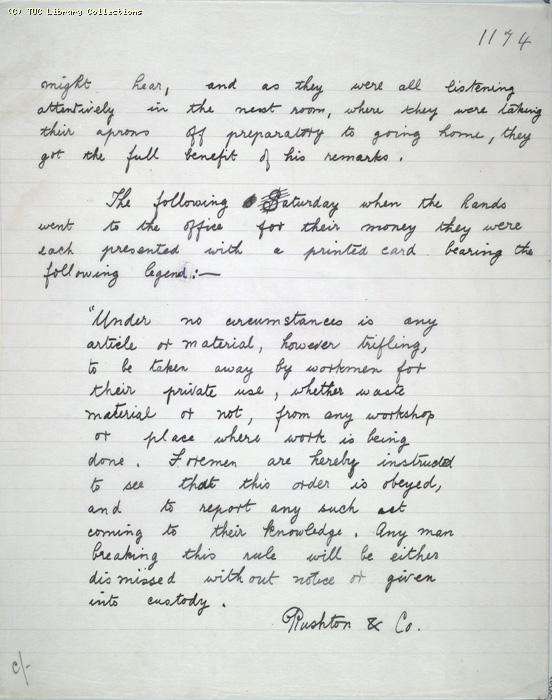 (C) TUC Library Collections
1174
might hear, and as they were all listening
attentively in the next room, where they were taking
their aprons off preparatory to going home, they
got the full benefit of his remarks.
The following Saturday when the hands
went to the office for their money they were
each presented with a printed card bearing the
following legend:—
"Under no circumstances is any
article or material, however trifling,
to be taken away by workmen for
their private use, whether waste
material or not, from any workshop
or place where work is being
done. Foremen are hereby instructed
to see that this order is obeyed,
and to report any such act
coming to their knowledge. Any man
breaking this rule will be either
dismissed without notice or given
into custody.
Rushton & Co.
c/-